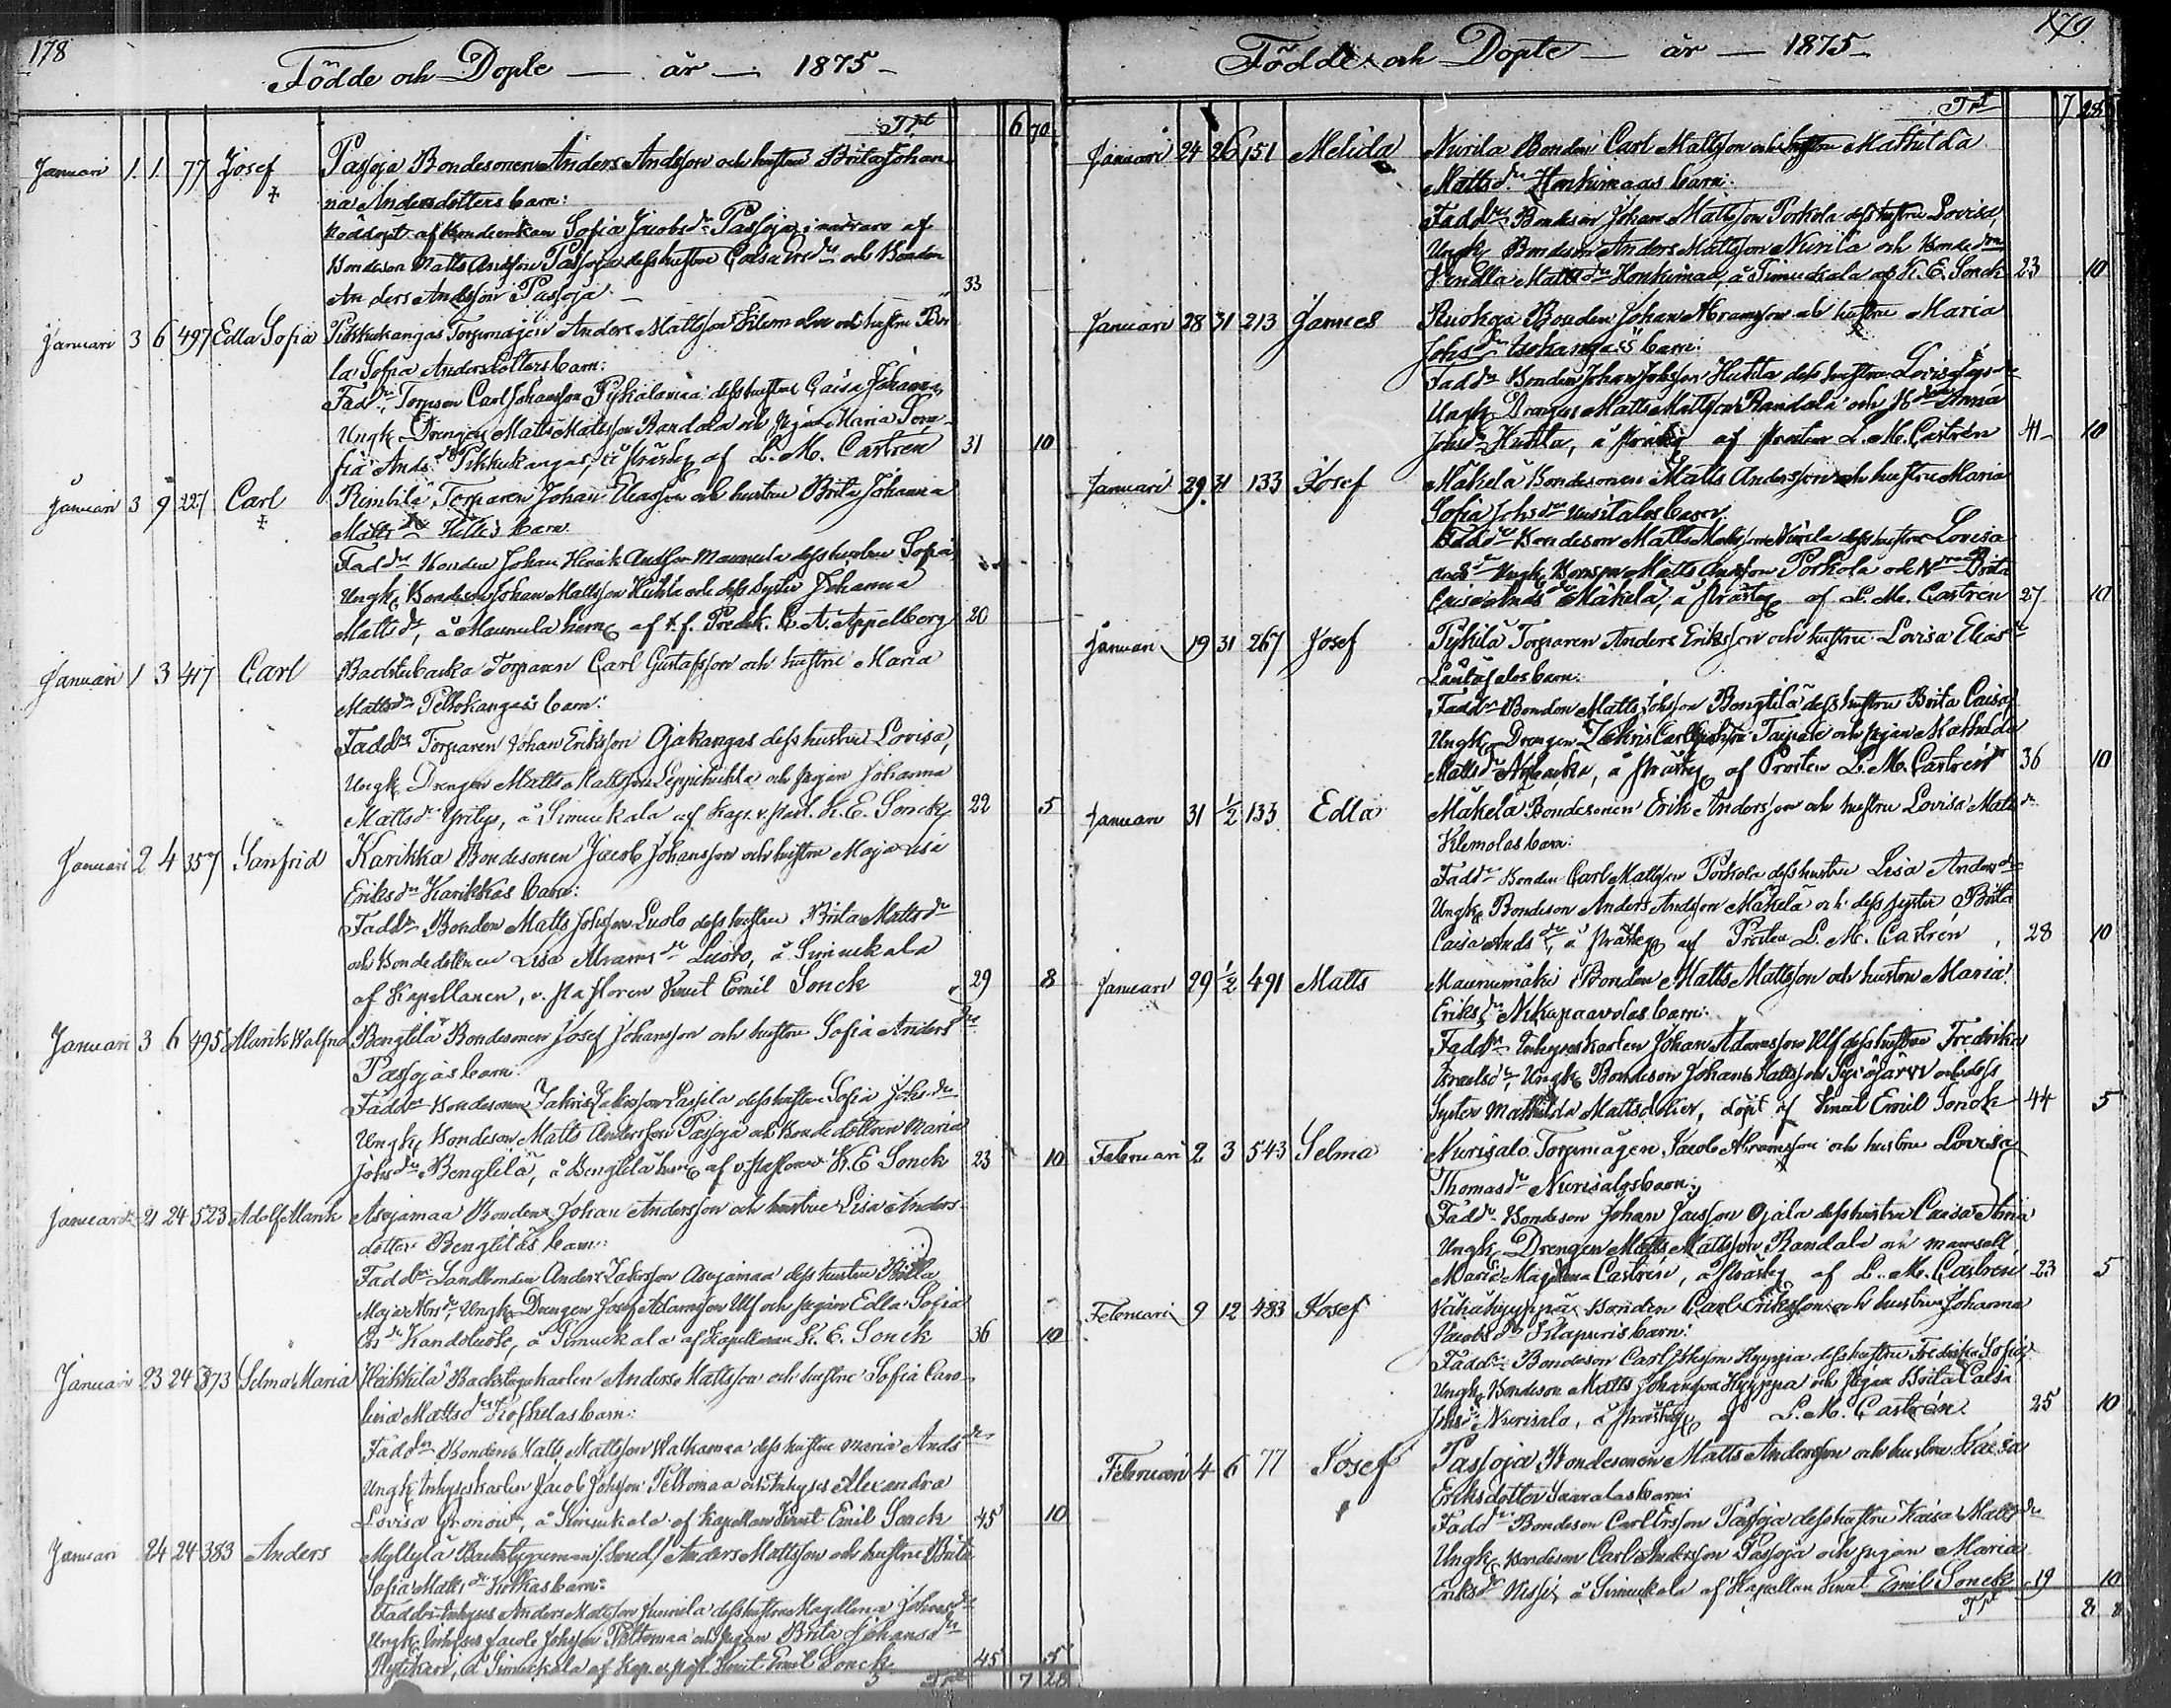 178
Födde och Döpte — år — 1875 —
Trt 6 70
Januari 1 1 77 Josef Pasoja Bondesonen Anders Andsson och hustru Brita Johan
na Andersdotters barn:
Nöddöpt af Sofia Jacobsdr Pasoja i närvaro af
Bondeson Matts Andsson Pasoja dess hustru Caisa och Bonden
Anders Andsson Pasoja 33
Januari 3 6 497 Edla Sofia Pikkukangas Anders Mattsson och hustru
la Sofia Andersdotters barn:
Faddr Carl Johansson Pyhälamaa dess hustru Caisa Johanna,
Ungk Drengen Matts Mattsson Randala och pigan Maria So
fia Andsdr Pikkukangas, å prästg af L. M. Castrén 31 10
Januari 3 9 227 Carl Torparen Johan Eliasson och hustru Brita Johanna
Mattsdr barn.
Faddr Bonden Johan Henrik Andsson Maunula dess hustru Sofia
Ungk Bondeson Johan Mattsson Huhta och dess syster Johanna
Mattsdr, å Maunula hem af t.f. Predik. C. A. Appelberg 20
Januari 1 3 417 Carl Backstubacka Torparen Carl Gustafsson och hustru Maria
Mattsdr Peltokangas's barn:
Faddr Torparen Johan Eriksson Ojakangas dess hustru Lovisa,
Ungk Drengen Matts Mattsson Leppihuhta och pigan Johanna
Mattsdr Yritys, å Simuckala af Kap. v. past. K. E. Sonck 22 5
Januari 2 4 357 Sanfrid Karikka Bondesonen Jacob Johansson och hustru Maja Lisa
Eriksdr Karikkas barn:
Faddr Bonden Matts Johsson Luoto dess hustru Brita Mattsdr
och Bondedottren Lisa Abramsdr Luoto, å Simuckala
af Kapellanen, v. pastoren Knut Emil Sonck 29 8
Januari 3 6 495 Alarik Walfrid Bengtilä Bondesonen Josef Johansson och hustru Sofia Andersdr
Pasojas barn.
Faddr Bondesonen Zakris Zakrisson Lassila dess hustru Sofia Johsdr
Ungk Bondeson Matts Andersson Pasoja och Bondedottren Maria
Johsdr Bengtilä, å Bengtilä hem af v. pastoren K. E. Sonck 23 10
Januari 21 24 523 Adolf Alarik Asujamaa Bonden Johan Andersson och hustru Lisa Anders
dotter Bengtiläs barn:
Faddr Landbonden Anders Zakrisson Asujamaa dess hustru Brita
Maja Abrsdr, Ungk Drengen Josef Adamsson Ulf och pigan Edla Sofia
Kandoluoto, å Simuckala af Kapellanen K. E. Sonck 36 10
Januari 23 24 373 Selma Maria Heikkilä Backstugukarlen Anders Mattsson och hustru Sofia Caro
lina Mattsdr Koskelas barn:
Faddr Bonden Matts Mattsson Walkamaa dess hustru Maria Andsdr
Ungk Inhyseskarlen Jacob Johsson Peltomaa och Inhyses Alexandra
Lovisa Gronow, å Simuckala af Kapellan Knut Emil Sonck 45 10
Januari 24 24 383 Anders Myllylä Backstuguman /Smed/ Anders Mattsson och hustru Brita
Sofia Mattsdr Kotkas barn:
Faddr Inhyses Anders Mattsson Junnila dess hustru Magdlena Johansdr
Ungk Inhyses Jacob Johsson Peltomaa och pigan Brita Johansdr
Rytikari, å Simuckala af Kap. v. past. Knut Emil Sonck 45 5
Trt 7 28
179
Födde och Döpte — år — 1875 —
Trt 7 28
Januari 24 26 151 Melida Nurila Bonden Carl Mattsson och hustru Mathilda
Mattsdr Honkimaas barn:
Faddr Bondeson Johan Mattsson Porkola dess hustru Lovisa,
Ungk Bondeson Anders Mattsson Nurila och Bondedn
Hendla Mattsdr Honkimaa, å Simuckala af K. E. Sonck 23 10
Januari 28 31 213 James Ruokoja Bonden Johan Abramsson och hustru Maria
Johsdr Isokangas's barn:
Faddr Bonden Johan Johsson Huhta dess hustru Lovisa
Ungk Drengen Matts Mattsson Randala och Anna
Johsdr Huhta, å prästg af Prosten L. M. Castrén 41 10
Januari 29 31 133 Josef Mäkelä Bondesonen Matts Andersson och hustru Maria
Sofia Johsdr Uusitalos barn.
Faddr Bondeson Matts Mattsson Nurila dess hustru Lovisa
Andsdr Ungk Bonson Matts Andsson Porkola och Brita
Caisa Andsdr Mäkelä, å prästg af L. M. Castrén 27 10
Januari 19 31 267 Josef Pyhilä Torparen Anders Eriksson och hustru Lovisa Eliasdr
barn:
Faddr Bonden Matts Johsson Bengtilä dess hustru Brita Caisa
Ungk Drengen Zakris Carlsson och pigan Mathilda
Mattsdr, å prästg af Prosten L. M. Castrén 36 10
Januari 31 1/2 133 Edla Mäkelä Bondesonen Erik Andersson och hustru Lovisa Mattsdr
Klemolas barn:
Faddr Bonden Carl Mattsson Porkola dess hustru Lisa Andersdr
Ungk Bondeson Anders Andsson Mäkelä och dess syster Brita
Caisa Andsdr, å prästg af Prosten L. M. Castrén 28 10
Januari 29 1/2 491 Matts Maunumäki Bonden Matts Mattsson och hustru Maria
Eriksdr barn:
Faddr Inhyseskarlen Johan Adamsson Ulf dess hustru Fredrika
Israelsdr, Ungk Bondeson Johan Mattsson Syväjärvi och dess
Syster Mathilda Mattsdotter, döpt af Knut Emil Sonck 44 5
Februari 2 3 543 Selma Nurisalo Torpmågen Jacob Abramsson och hustru Lovisa
Thomasdr Nurisalos barn:
Faddr Bondeson Johan Jacsson Ojala dess hustru Caisa Stina
Ungk Drengen Matts Mattsson Randala och mamsell
Maria Magdlena Castrén, å prästg af L. M. Castrén 23 5
Februari 9 12 483 Josef Vähähyyppä Bonden Carl Eriksson och hustru Johanna
Jacobsdr Klapuris barn:
Faddr Bondeson Carl Johsson Hyyppä dess hustru Fredrika Sofia,
Ungk Bondeson Matts Johansson Hyyppä och pigan Brita Caisa
Johsdr Nurisalo, å prästg af L. M. Castrén 25 10
Februari 4 6 77 Josef Pasoja Bondesonen Matts Andersson och hustru Kaisa
Eriksdotter Saaralas barn:
Faddr Bondeson Carl Ersson Pasoja dess hustru Kaisa Mattsdr
Ungk Bondeson Carl Andersson Pasoja och pigan Maria
Eriksdr Nissi, å Simuckala af Kapellan Knut Emil Sonck 19 10
Trt 8 8